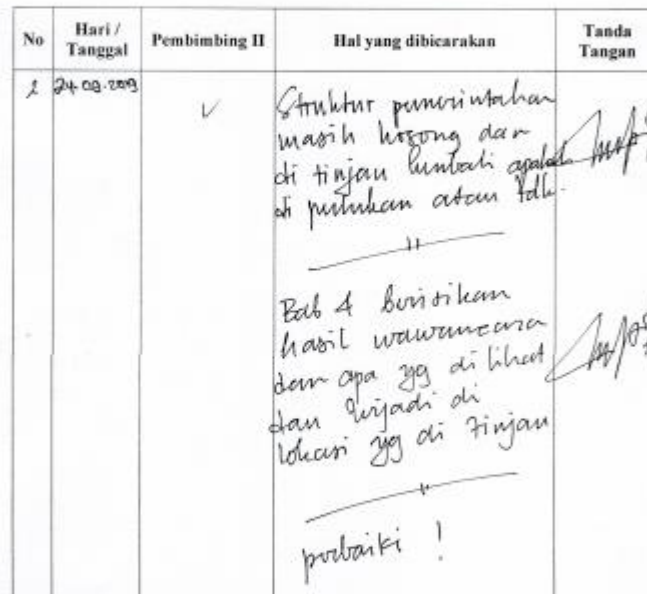 No Hari / Tanggal Pembimbing II Hal yang dibicarakan Tanda Tangan
24.09.2019
Struktur pemerintahan
masih kosong dan
di tinjau kembali apakah
di perlukan atau tdk.
Bab 4 berisikan
hasil wawancara
dan apa yg di lihat
dan terjadi di
lokasi yg di tinjau
perbaiki !